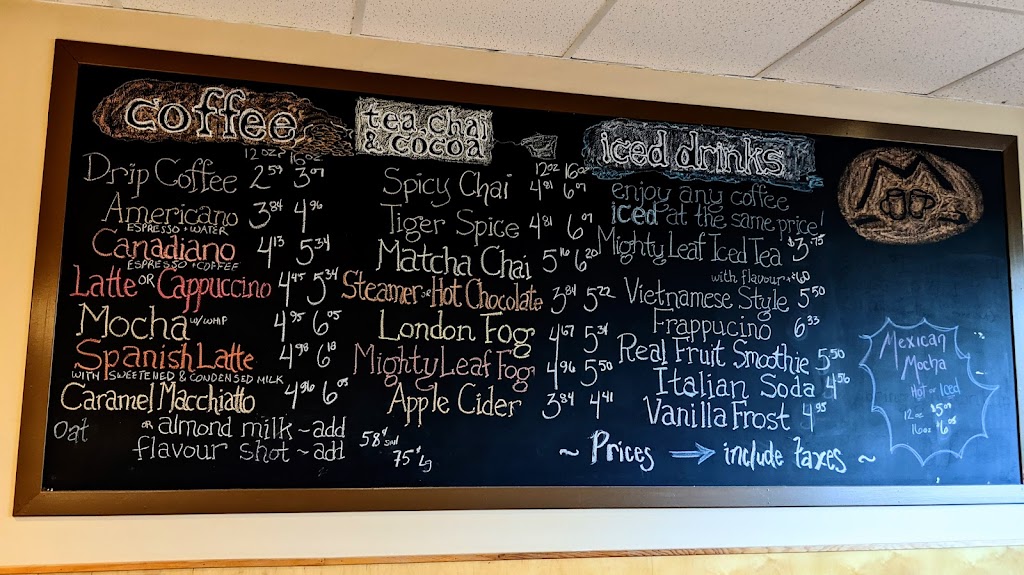 coffee
12oz 16oz
Drip Coffee 2.59 3.07
Americano 3.84 4.96
ESPRESSO + WATER
Canadiano 4.13 5.34
ESPRESSO + COFFEE
Latte OR Cappuccino 4.45 5.34
Mocha w/ WHIP 4.95 6.05
Spanish Latte 4.98 6.18
WITH SWEETENED & CONDENSED MILK
Caramel Macchiatto 4.96 6.05
oat OR almond milk ~ add 58¢ sml
flavour shot ~ add 75¢ Lg
tea, chai
& cocoa
12oz 16oz
Spicy Chai 4.81 6.07
Tiger Spice 4.81 6.07
Matcha Chai 5.10 6.20
Steamer or Hot Chocolate 3.84 5.22
London Fog 4.67 5.34
Mighty Leaf Fog 4.96 5.50
Apple Cider 3.84 4.41
iced drinks
enjoy any coffee
iced at the same price!
Mighty Leaf Iced Tea $3.75
with flavour + .60
Vietnamese Style 5.50
Frappucino 6.33
Real Fruit Smoothie 5.50
Italian Soda 4.56
Vanilla Frost 4.95
~ Prices → include taxes ~
M
Mexican
Mocha
Hot or Iced
12oz $5.09
16oz $6.05